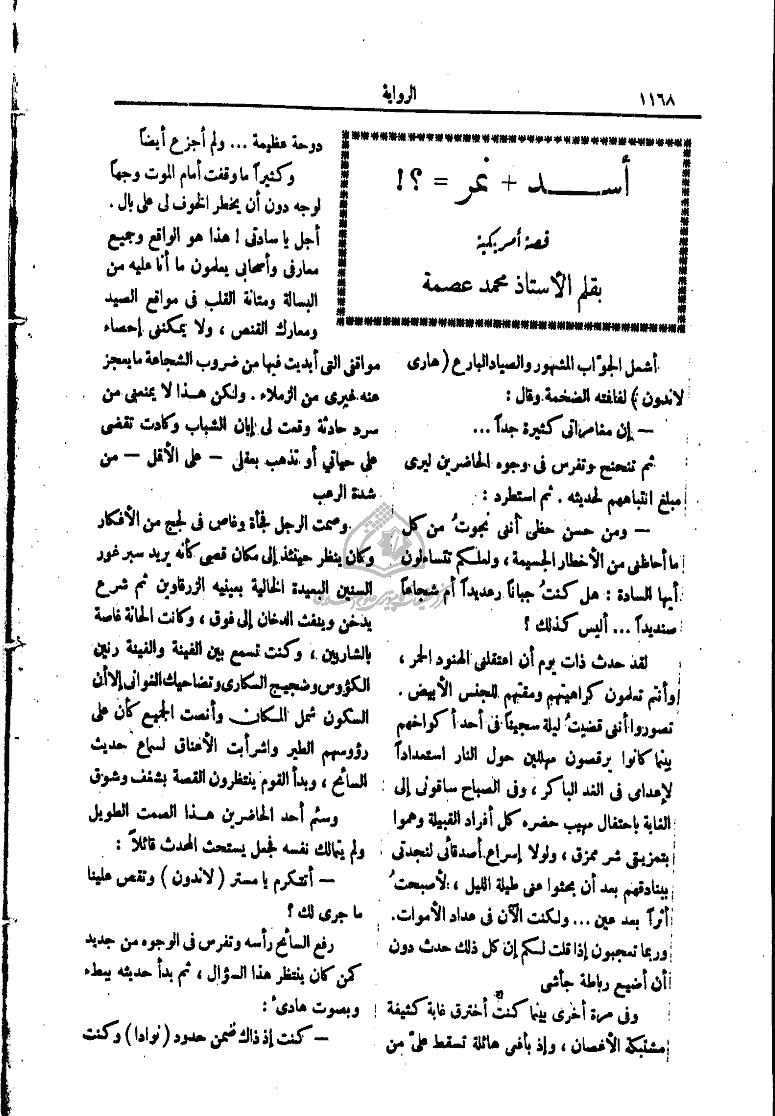 ١١٦٨
الرواية
أســد + نمر = ؟!
قصة أمريكية
بقلم الأستاذ محمد عصمة
أشعل الجوّاب المشهور والصياد البارع ( هارى
لاندون ) لفافته الضخمة وقال :
— إن مغامراتى كثيرة جداً ...
ثم تنحنح وتفرس فى وجوه الحاضرين ليرى
مبلغ انتباههم لحديثه . ثم استطرد :
— ومن حسن حظى أننى نجوتُ من كل
ما أحاطنى من الأخطار الجسيمة ، ولعلكم تتساءلون
أيها السادة : هل كنتُ جباناً رعديداً أم شجاعاً
صنديداً ... أليس كذلك ؟
لقد حدث ذات يوم أن اعتقلنى الهنود الحمر ،
وأنتم تعلمون كراهيتهم ومقتهم للجنس الأبيض .
تصوروا أننى قضيتُ ليلة سجيناً فى أحد أكواخهم
بينما كانوا يرقصون مهللين حول النار استعداداً
لإعدامى فى الغد الباكر ، وفى الصباح ساقونى إلى
الغابة باحتفال مهيب حضره كل أفراد القبيلة وهموا
بتمزيقى شر ممزق ، ولولا إسراع أصدقائى لنجدتى
ببنادقهم بعد أن بحثوا عنى طيلة الليل ، لأصبحتُ
أثراً بعد عين ... ولكنت الآن فى عداد الأموات .
وربما تعجبون إذا قلت لكم إن كل ذلك حدث دون
أن أضيع رباطة جأشى
وفى مرة أخرى بينما كنت أخترق غابة كثيفة
مشتبكة الأغصان ، وإذ بأفعى هائلة تسقط علىّ من
دوحة عظيمة ... ولم أجزع أيضاً
وكثيراً ما وقفت أمام الموت وجهاً
لوجه دون أن يخطر الخوف لى على بال .
أجل يا سادتى ! هذا هو الواقع وجميع
معارفى وأصحابى يعلمون ما أنا عليه من
البسالة ومتانة القلب فى مواقع الصيد
ومعارك القنص ، ولا يمكننى إحصاء
مواقفى التى أبديت فيها من ضروب الشجاعة ما يعجز
عنه غيرى من الزملاء . ولكن هذا لا يمنعنى من
سرد حادثة وقعت لى إبان الشباب وكادت تقضى
على حياتي أو تذهب بعقلى — على الأقل — من
شدة الرعب
وصمت الرجل فجأة وغاص فى لجج من الأفكار
وكان ينظر حينئذ إلى مكان قصى كأنه يريد سبر غور
السنين البعيدة الخالية بعينيه الزرقاوين ثم شرع
يدخن وينفث الدخان إلى فوق ، وكانت الحانة غاصة
بالشاربين ، وكنت تسمع بين الفينة والفينة رنين
الكؤوس وضجيج السكارى وتضاحيك الغوانى إلا أن
السكون شمل المكان وأنصت الجميع كأن على
رؤوسهم الطير واشرأبت الأعناق لسماع حديث
السائح ، وبدأ القوم ينتظرون القصة بشغف وشوق
وسئم أحد الحاضرين هذا الصمت الطويل
ولم يتمالك نفسه فجعل يستحث المحدث قائلاً :
— أتتكرم يا مستر ( لاندون ) وتقص علينا
ما جرى لك ؟
رفع السائح رأسه وتفرس فى الوجوه من جديد
كمن كان ينتظر هذا السؤال ، ثم بدأ حديثه ببطء
وبصوت هادئ :
— كنت إذ ذاك ضمن حدود ( نوادا ) وكنت